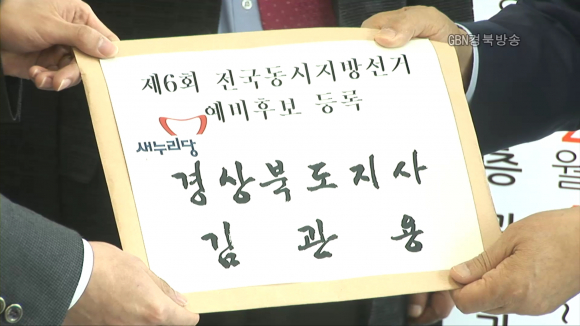 GBN경북방송
제6회 전국동시지방선거
예비후보 등록
새누리당
경상북도지사
김관용
월
증